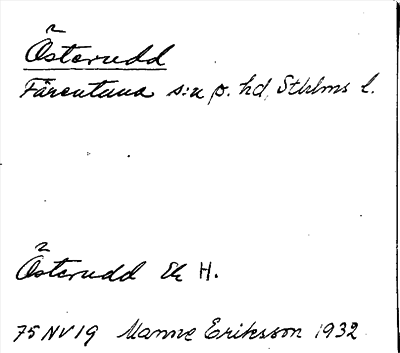 Österudd
Färentuna s:n o. hd, Sthlms l.
Österudd Ek H.
75 NV 19 Manne Eriksson 1932